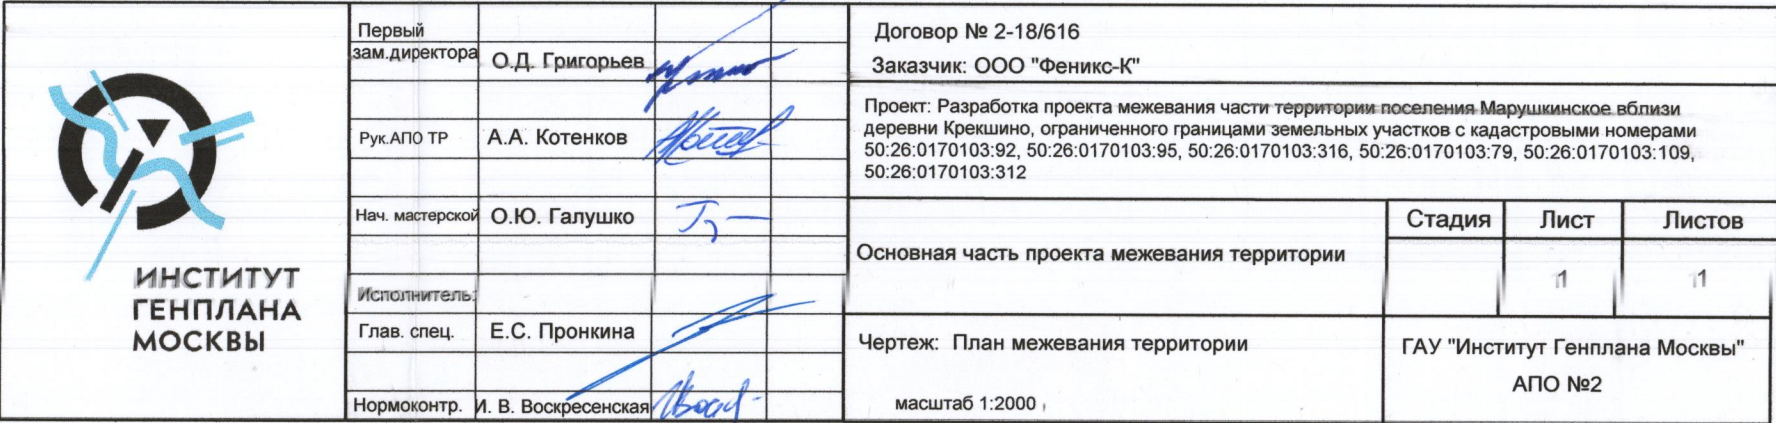 ИНСТИТУТ
ГЕНПЛАНА
МОСКВЫ
Первый
зам.директора О.Д. Григорьев
Рук.АПО ТР А.А. Котенков
Нач. мастерской О.Ю. Галушко
Исполнитель:
Глав. спец. Е.С. Пронкина
Нормоконтр. И. В. Воскресенская
Договор № 2-18/616
Заказчик: ООО "Феникс-К"
Проект: Разработка проекта межевания части территории поселения Марушкинское вблизи
деревни Крекшино, ограниченного границами земельных участков с кадастровыми номерами
50:26:0170103:92, 50:26:0170103:95, 50:26:0170103:316, 50:26:0170103:79, 50:26:0170103:109,
50:26:0170103:312
Основная часть проекта межевания территории
Стадия Лист Листов
1 1
Чертеж: План межевания территории
масштаб 1:2000
ГАУ "Институт Генплана Москвы"
АПО №2